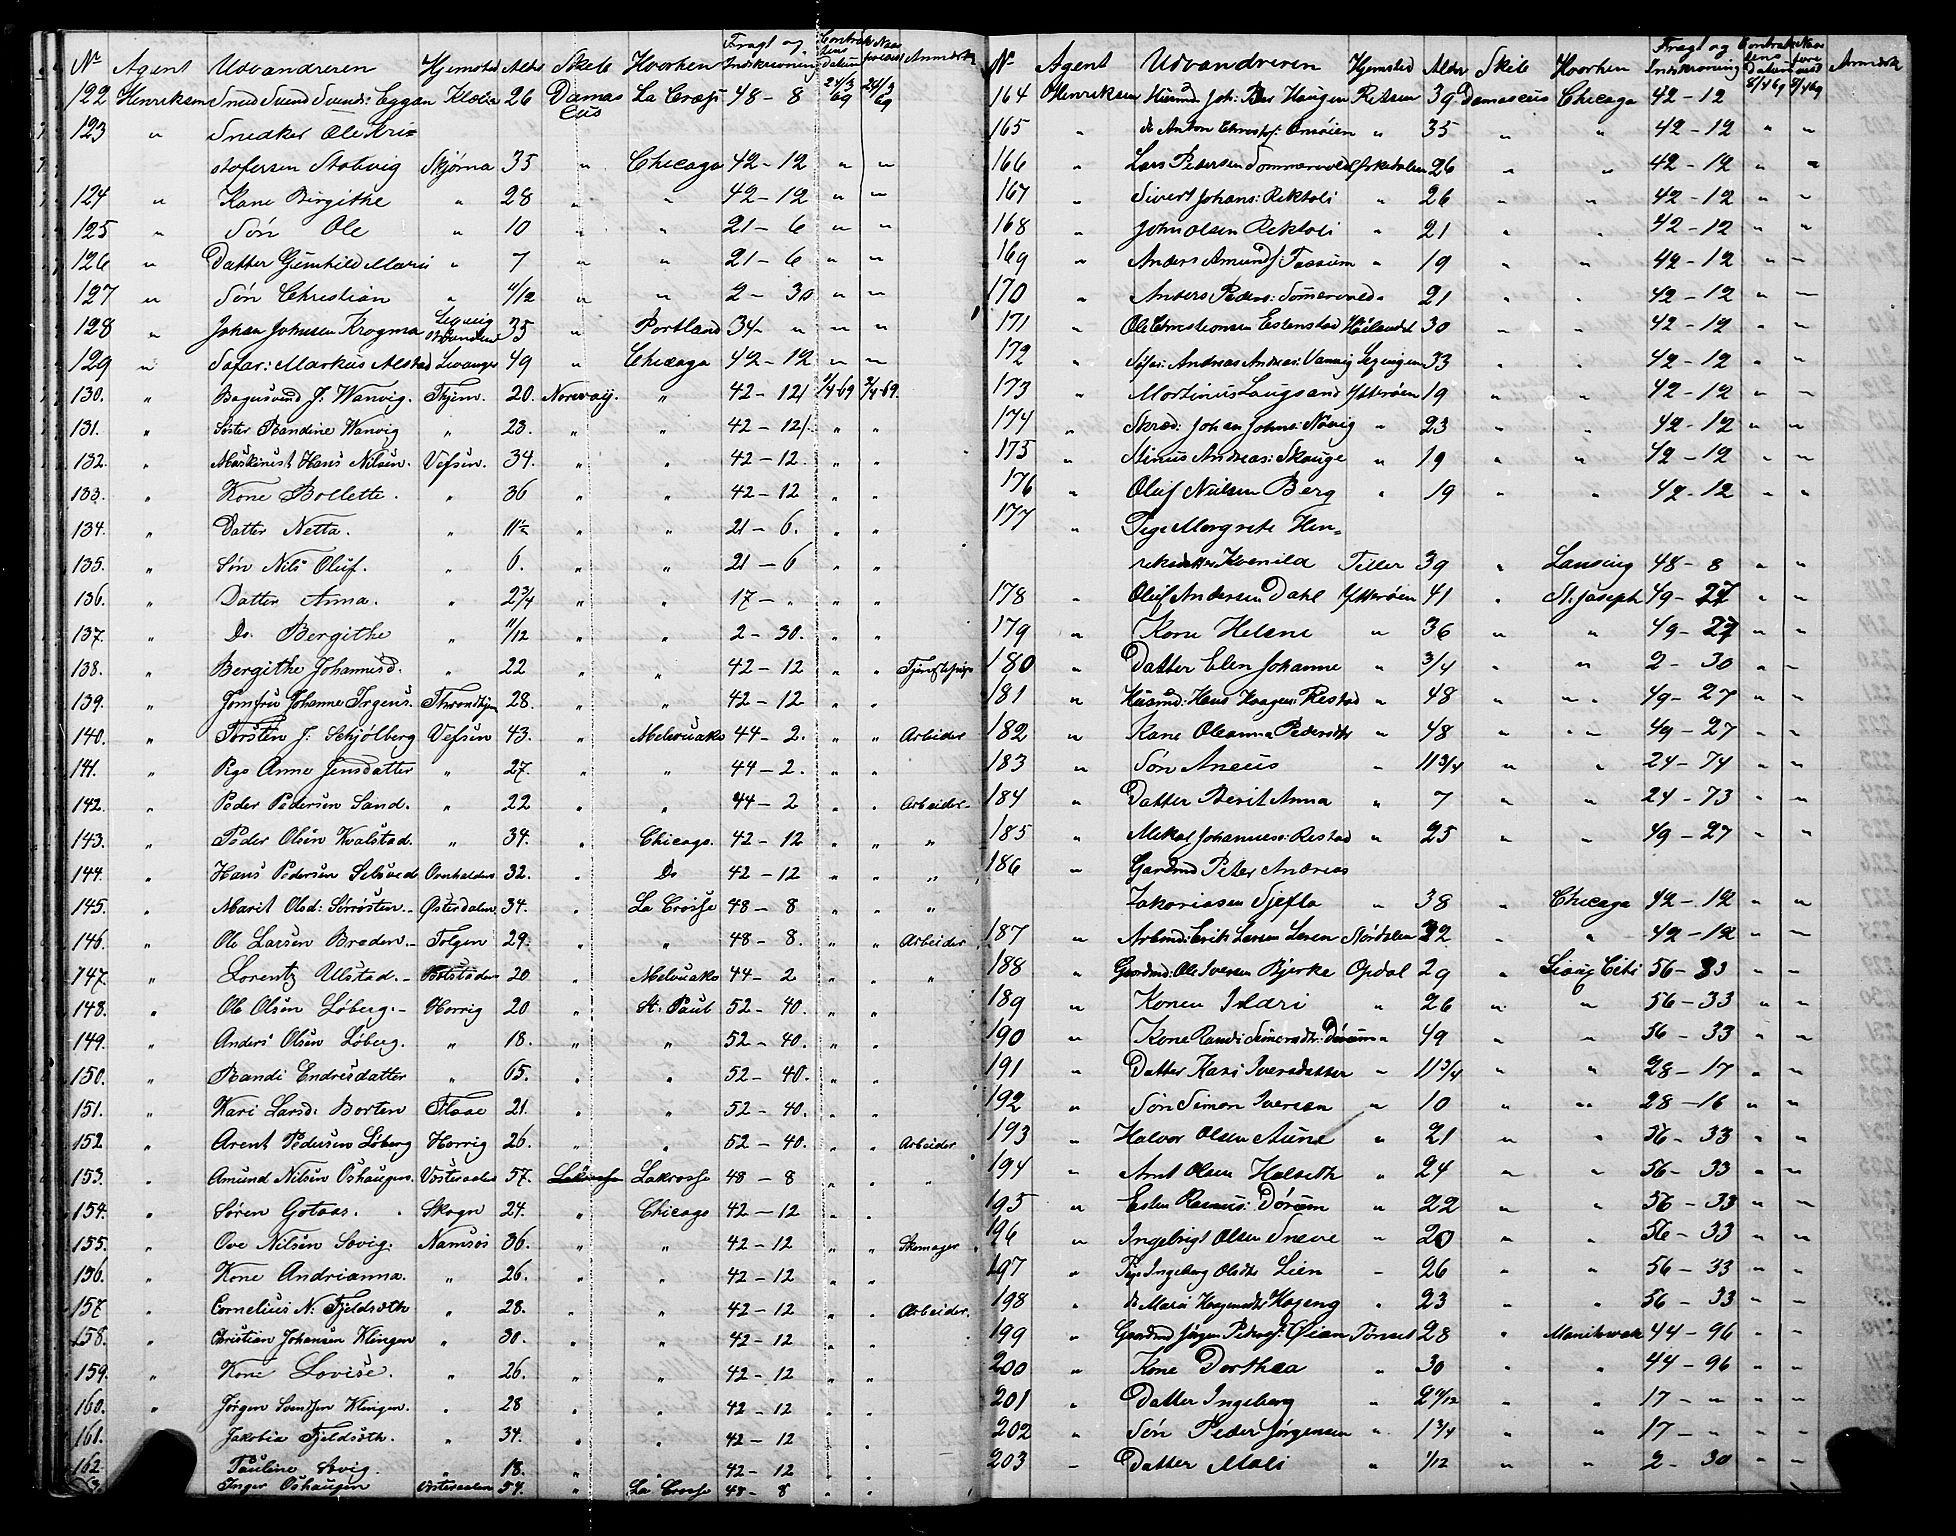 No Agent Udvandreren Hjemsted Alder Skib Hvorhen Fragt og Indskrivning Contraktens Datum
122 Henriksen Smed Svend Svends: Eggan Klæbu 26 Damascus La Cross 48 - 8 24/3 69 24/3 69
123 " Snedker Ole Kri=
stofersen Stobvig Skjørna 35 " Chicago 42 - 12 " "
124 " Kone Birgithe " 28 " " 42 - 12 " "
125 " Søn Ole " 10 " " 21 - 6 " "
126 " Datter Gunhild Marie " 7 " " 21 - 6 " "
127 " Søn Christian " 11/12 " " 2 - 30 " "
128 " Johan Johnsen Krogmo 35 " Portland 34 - " " "
129 " Markus Alstad Levanger 49 " Chicago 42 - 12 " "
130. " J. Wanvig. Thjem. 20. Norway. " 42 - 12 1/4-69 2/4-69.
131. " Søster Randine Wanvig " 23. " " 42 - 12 " "
132. " Maskinist Hans Nilsen. Vefsen. 34. " " 42 - 12. " "
133. " Kone Bollette. " 36 " " 42 - 12 " "
134. " Datter Netta. " 11½ " " 21 - 6. " "
135. " Søn Nils Oluf. " 6. " " 21 - 6 " "
136. " Datter Anna. " 2 3/4 " " 17 - " " "
137. " Do. Bergithe " 11/12 " " 2 - 30. " "
138. " Bergithe Johannesd. " 22 " " 42 - 12 " " Tjenestepige
139. " Jomfru Johanne Irgens. Throndhjem 28. " " 42 - 12 " "
140. " Torsten J. Schjølberg Vefsen 43. " Melvuaks 44 - 2. " " Arbeider
141. " Pige Anne Jensdatter " 27. " " 44 - 2. " "
142. " Peder Pedersen Sand. " 22 " " 44 - 2 " " Arbeider
143. " Peder Olsen Kvalstad. " 34. " Chicago. 42 - 12 " " "
144. " Hans Pedersen Overhalden 32. " Do 42 - 12 " " "
145. " Marit Olsd: Sørrosten. Østerdalen 34. " La Crosse 48 - 8 " " "
146. " Ole Larsen Braden. Tolgen 29. " " 48 - 8. " " Arbeider
147. " Lorentz Ulstad. 20 " Melvuaks 44 - 2 " " "
148. " Ole Olsen Løberg. Horrig 20 " St. Paul 52 - 40. " "
149. " Anders Olsen Løberg. " 18. " " 52 - 40. " "
150. " Randi Endresdatter " 65. " " 52 - 40. " "
151. " Kari Larsd: Borten Flaae 21. " " 52 - 40. " "
152. " Arent Pedersen Løberg Horrig 26. " " 52 - 40. " " Arbeider
153. " Amund Nilsen Oshaugen. 57. Lakrosse Lakrosse 48 - 8 " " "
154. " Søren Gotaas. Skogn 24. " Chicago 42 - 12 " "
155. " Ove Nilsen Sævig. Namsos 36. " " 42 - 12 " " Skomager
156. " Kone Andrianna. " 26. " " 42 - 12 " "
157. " Cornelius N. Fjeldsøth " 28. " " 42 - 12 " " Arbeider.
158. " Christian Johansen Klingen " 30. " " 42 - 12 " "
159. " Kone Lovise. " 26. " " 42 - 12 " "
160. " Jørgen Svendsen Klingen. " 28 " " 42 - 12 " "
161. " Jakobia Fjeldsøth. " 34. " " 42 - 12 " "
162 Pauline Sævig. " 18. " " 42 - 12 " "
Inger Oshaugen 54. " La Crosse 48 - 8 " "
No Agent Udvandreren Hjemsted Alder Skib Hvorhen Fragt og Indskrivning Contraktens Datum Anmærk
164 Henriksen Husmd Joh: Haugen Reitsen 39 Damascus Chicago 42 - 12 8/4 69 8/4 69
165 " do Anton Christof: " 35 " " 42 - 12 " "
166 " Lars Petersen Sommervold Orkedalen 26 " " 42 - 12 " "
167 " Sivert Johans: Rektoli " 26 " " 42 - 12 " "
168 " John Olsen Rektoli " 21 " " 42 - 12 " "
169 " Anders Amunds: Fossum " 19 " " 42 - 12 " "
170 " Anders Peders: Somervold " 21 " " 42 - 12 " "
171 " Ole Christiansen Estenstad Høilandet 30 " " 42 - 12 " "
172 " Andreas Andreas: Vannvig 33 " " 42 - 12 " "
173 " Martinus Laugsand Ytterøen 19 " " 42 - 12 " "
174 " Skræd: Johan Johns: " 23 " " 42 - 12 " "
175 " Minus Andreas: Skauge " 19 " " 42 - 12 " "
176 " Oluf Nielsen Berg " 19 " " 42 - 12 " "
177 " Pige Margrete Hen=
riksdatter Kvenild Teller 39 " Lansing 48 - 8 " "
178 " Oluf Andersen Dahl Ytterøen 41 " St. Joseph 49 - 27 " "
179 " Kone Helene " 36 " " 49 - 27 " "
180 " Datter Elen Johanne " 3/4 " " 2 - 30 " "
181 " Husmd: Hans Haagens: Restad " 48 " " 49 - 27 " "
182 " Kone Oleanna Pedersdtr " 48 " " 49 - 27 " "
183 " Søn Aneus " 11 3/4 " " 24 - 74 " "
184 " Datter Berit Anna " 7 " " 24 - 73 " "
185 " Mikal Johannes: Restad " 25 " " 49 - 27 " "
186 " Gaardmd Peter Andreas
Zakariasen Sjefto " 38 " Chicago 42 - 12 " "
187 " Arbmd: Erik Larsen Leren Stördalen 22 " " 42 - 12 " "
188 " Gaardmd: Ole Iversen Bjerke Opdal 29 " Sioux Citi 56 - 33 " "
189 " Konen Ildri " 26 " " 56 - 33 " "
190 " Kone Randi Simensdtr: Dørum " 49 " " 56 - 33 " "
191 " Datter Kari Iversdatter " 11 3/4 " " 28 - 17 " "
192 " Søn Simon Iversen " 10 " " 28 - 16 " "
193 " Halvor Olsen Aune " 21 " " 56 - 33 " "
194 " Arnt Olsen Halseth " 24 " " 56 - 33 " "
195 " Esten Rasmus: Dørum " 22 " " 56 - 33 " "
196 " Ingebrigt Olsen Sneve " 20 " " 56 - 33 " "
197 " Pige Ingeborg Olsdtr Lien " 26 " " 56 - 33 " "
198 " do Marie Haagensdtr Hageng " 23 " " 56 - 33 " "
199 " Gaardmd Jörgen Peders: Øian Tønset 28 " Manitowak 44 - 96 " "
200 " Kone Dorthea " 30 " " 44 - 96 " "
201 " Datter Ingeborg " 2 11/12 " " 17 - " " "
202 " Søn Peder Jørgensen " 1 3/4 " " 17 - " " "
203 " Datter Mali " 1/12 " " 2 - 30 " "